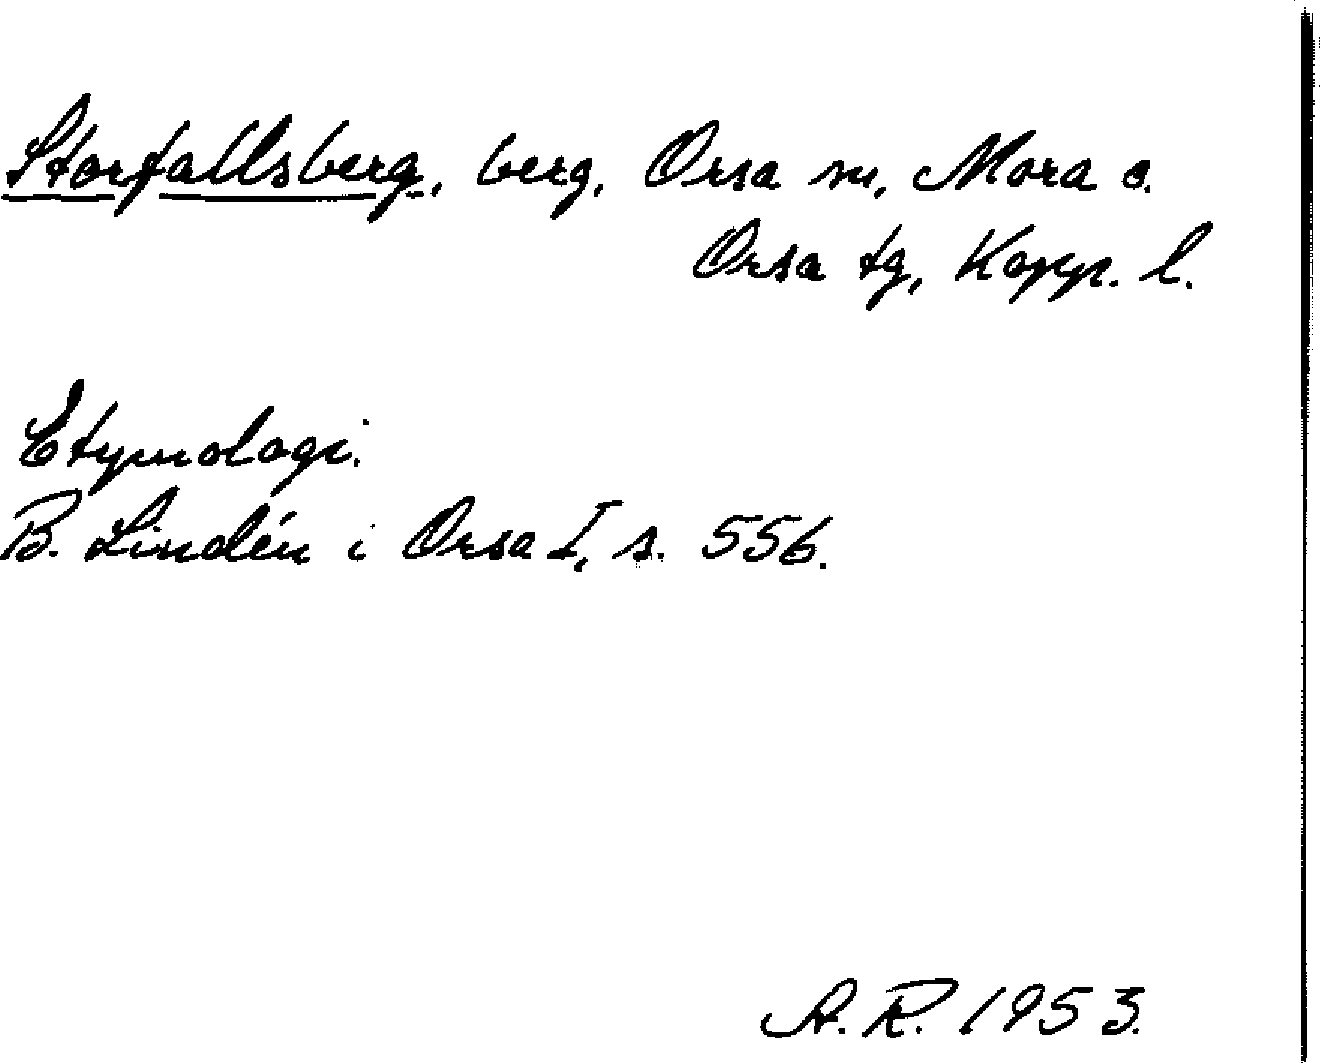 Storfallsberg, berg, Orsa sn, Mora o.
Orsa tg, Kopp. l.
Etymologi.
B. Lindén i Orsa I, s. 556.
A. R. 1953.